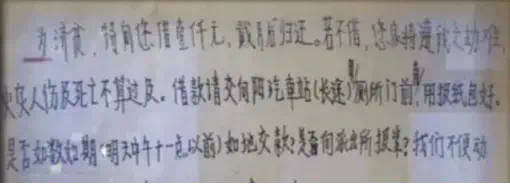 为济贫，特向您借壹仟元，贰月后归还。若不借，您家将遭战之劫难，
火灾人伤及死亡不算过及。借款请交向阳汽車站(长途)厕所门前，用报纸包好。
是否如数如期(明天中午十一点以前)如地交款？是否向派出所报案？我们不便动